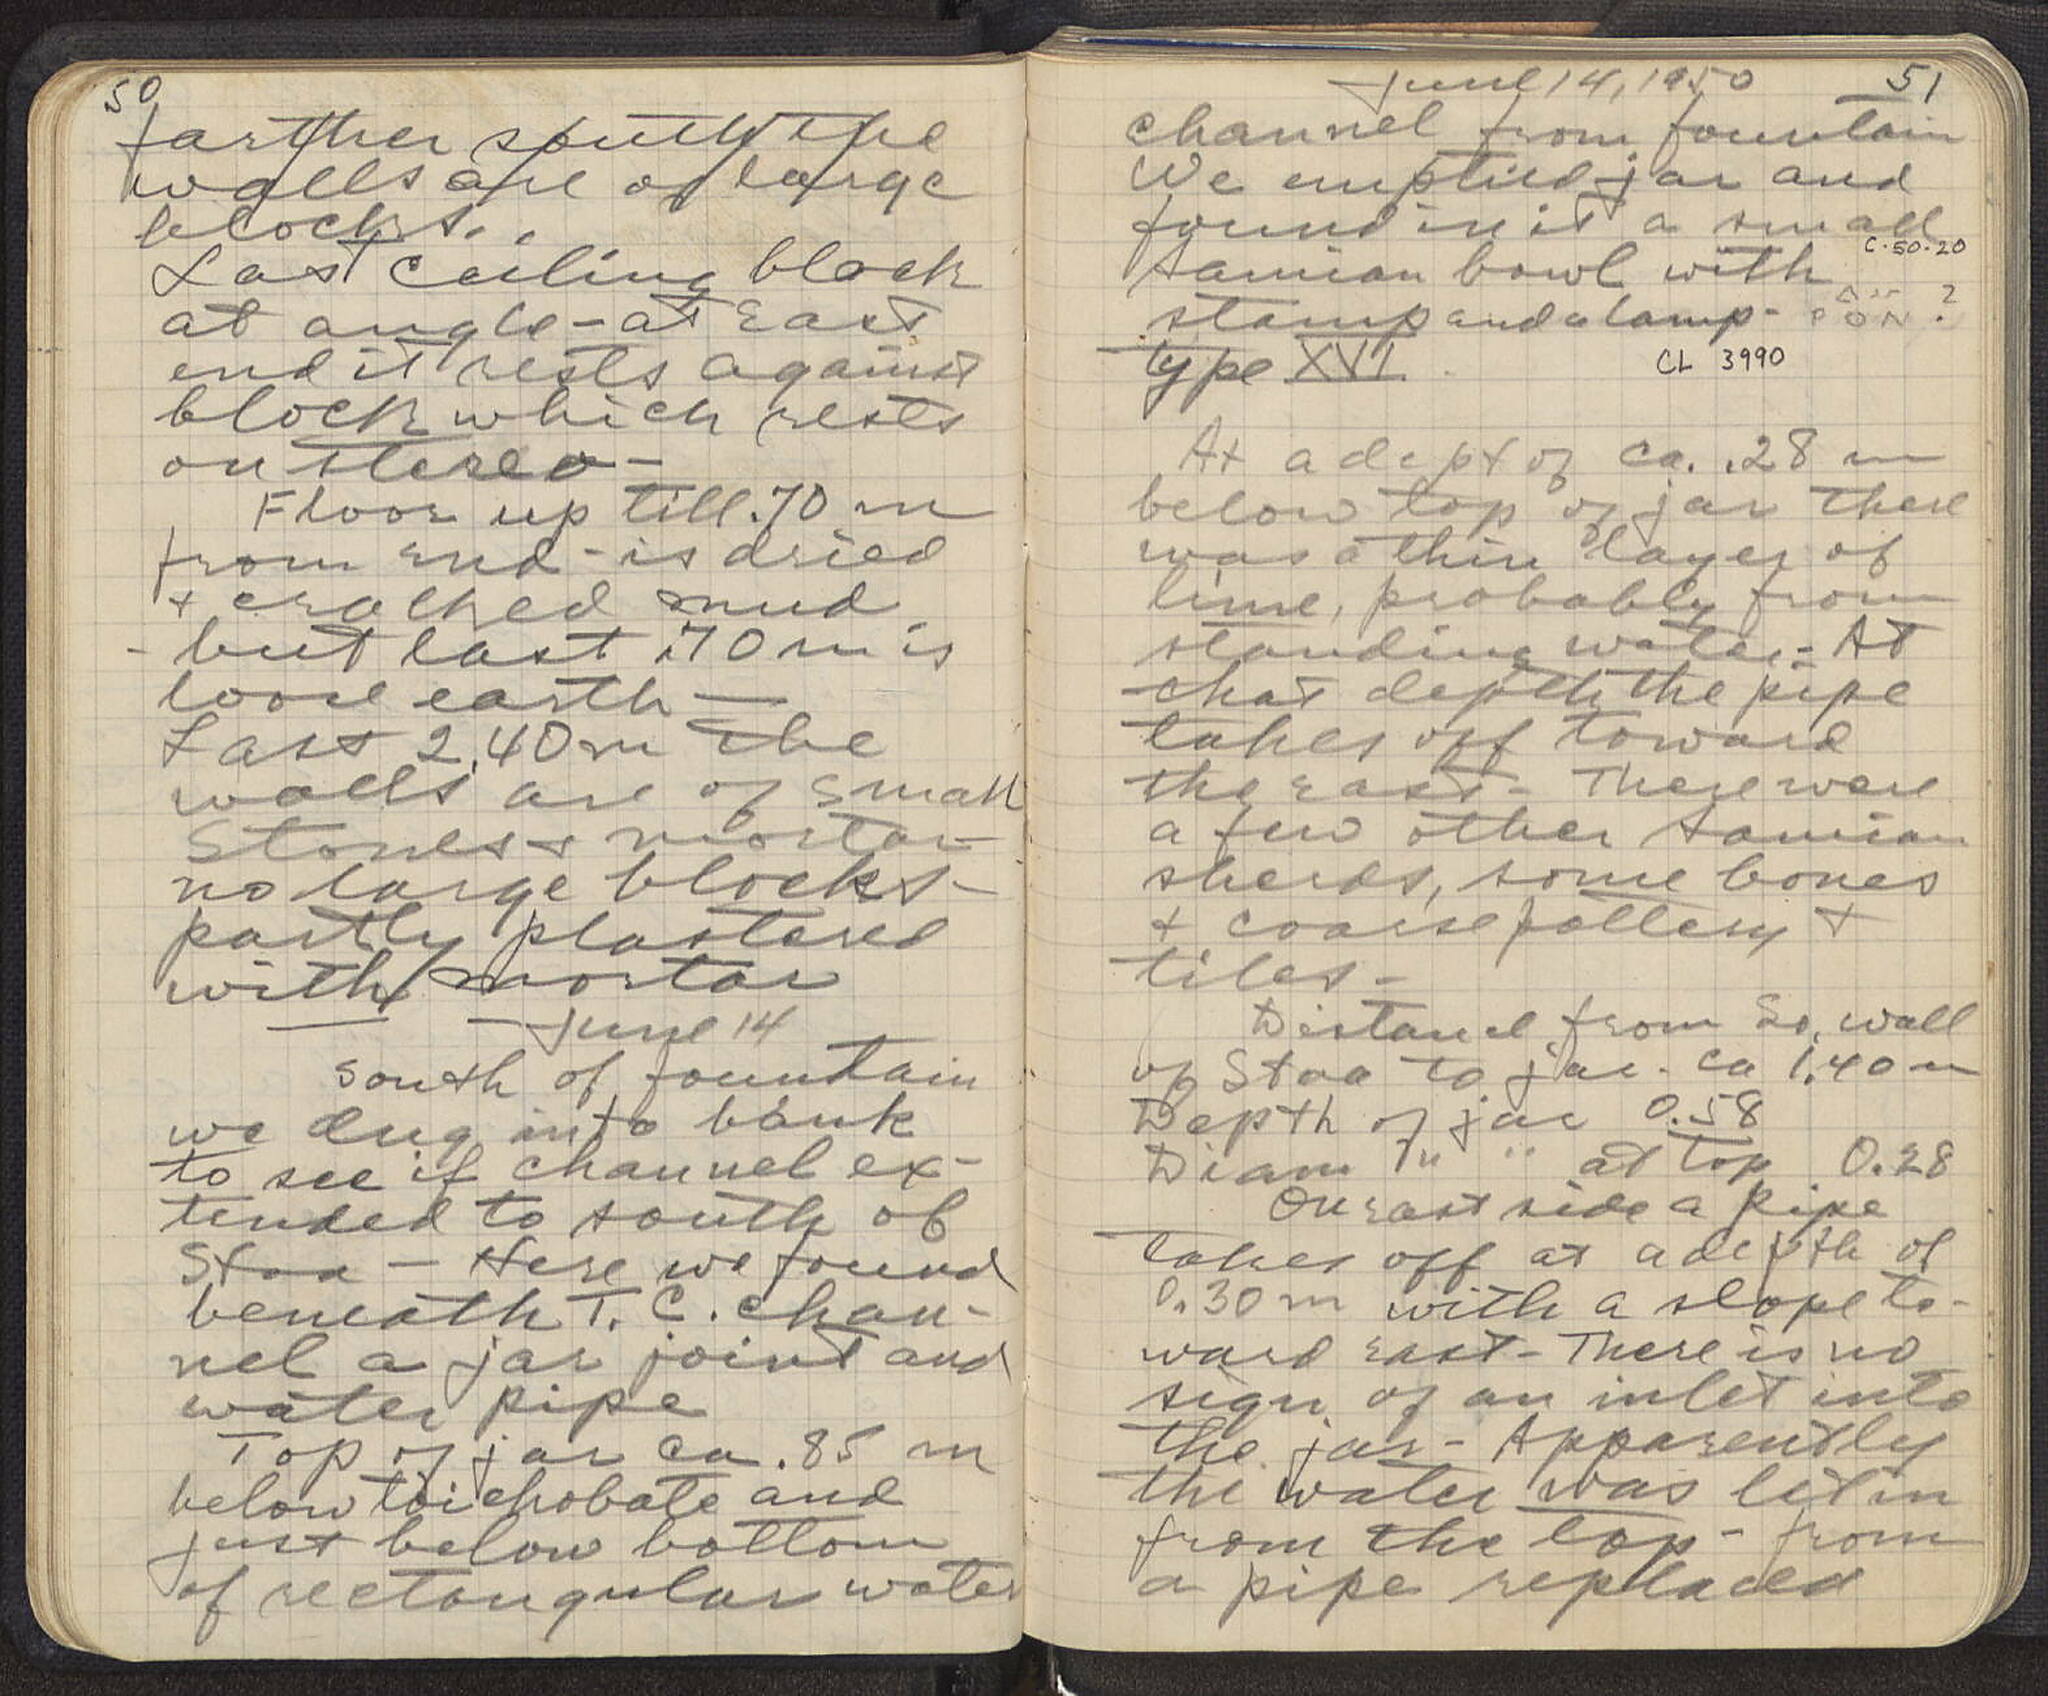 50
farther south the
walls are of large
blocks.
Last ceiling block
at angle - at East
end it rests against
block which rests
on stereo -
Floor up till .70 m
from end - is dried
+ cracked mud
- but last .70 m is
loose earth —
Last 2.40 m the
walls are of small
stones + mortar
no large blocks -
partly plastered
with mortar
June 14
South of fountain
we dug into bank
to see if channel ex-
tended to south of
Stoa - Here we found
beneath T. C. chan-
nel a jar joint and
water pipe
Top of jar ca. .85 m
below toichobate and
just below bottom
of rectangular water
June 14, 1950
51
channel from fountain
We emptied jar and
found in it a small
Samian bowl with
C-50-20
stamp and a lamp -
type XVI.
CL 3990
At a dept of ca. .28 m
below top of jar there
was a thin layer of
lime, probably from
standing water - At
that depth the pipe
takes off toward
the east - There were
a few other Samian
sherds, some bones
+ coarse pottery +
tiles -
Distance from So. wall
of Stoa to jar - ca 1.40 m
Depth of jar 0.58
Diam " " at top 0.28
On east side a pipe
takes off at a depth of
0.30 m with a slope to-
ward east - There is no
sign of an inlet into
the jar - Apparently
the water was let in
from the top - from
a pipe replaced